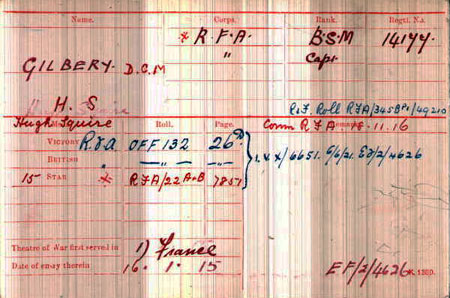 Name. Corps. Rank. Regtl. No.
* R.F.A. B.S.M 14177.
" Capt.
GILBERY. D.C.M
H. S
Hugh Squire
R.F. Roll RFA/345B 49210
Roll. Page. Comm R F A 11.16
VICTORY R.F.A. OFF 132 26
BRITISH " —"— "
I.V.X/6651. 6/6/21. EF/2/4626
15 STAR * RFA/22 A+B 7857
Theatre of War first served in 1) France
Date of entry therein 16. 1. 15
EF/2/4626 K. 1380.